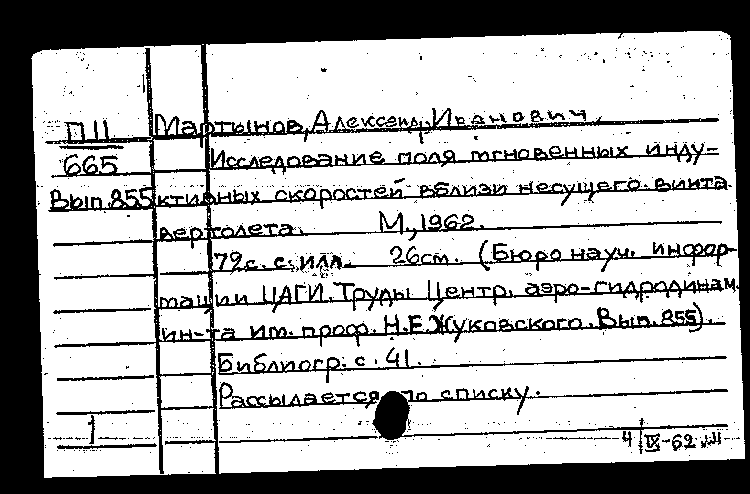 П11 Мартынов, Александр Иванович.
665 Исследование поля мгновенных инду-
Вып.855 ктивных скоростей вблизи несущего винта
вертолета. М., 1962.
72с. с илл. 26см. (Бюро науч. инфор-
мации ЦАГИ. Труды Центр. аэро-гидродинам.
ин-та им. проф. Н.Е.Жуковского. Вып. 855).
Библиогр. с. 41.
Рассылается по списку.
1
4/IX-62